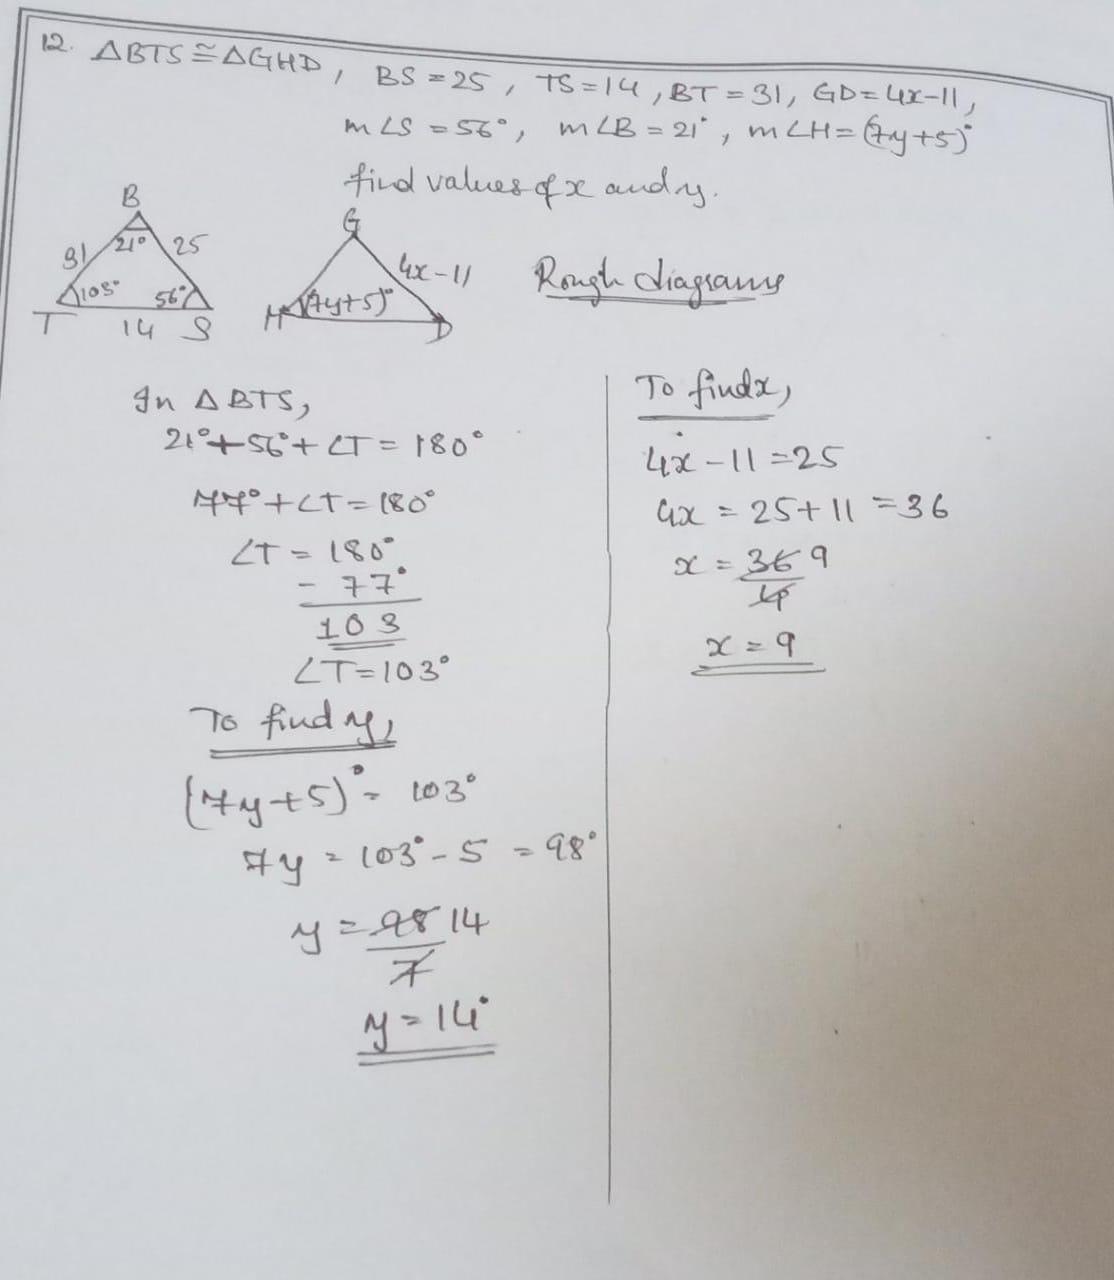 12. △BTS ≅ △GHD, BS = 25, TS = 14, BT = 31, GD = 4x-11,
m∠S = 56°, m∠B = 21°, m∠H = (7y+5)°
find values of x and y.
B
21°
31
25
103°
56°
T
14
S
G
4x-11
(7y+5)°
H
D
Rough diagrams
In △BTS,
21°+56°+∠T = 180°
77°+∠T = 180°
∠T = 180°
- 77°
103
∠T=103°
To find y,
(7y+5)° = 103°
7y = 103° - 5 = 98°
y = 98 14
7
y = 14°
To find x,
4x - 11 = 25
4x = 25+11 = 36
x = 36 9
4
x = 9